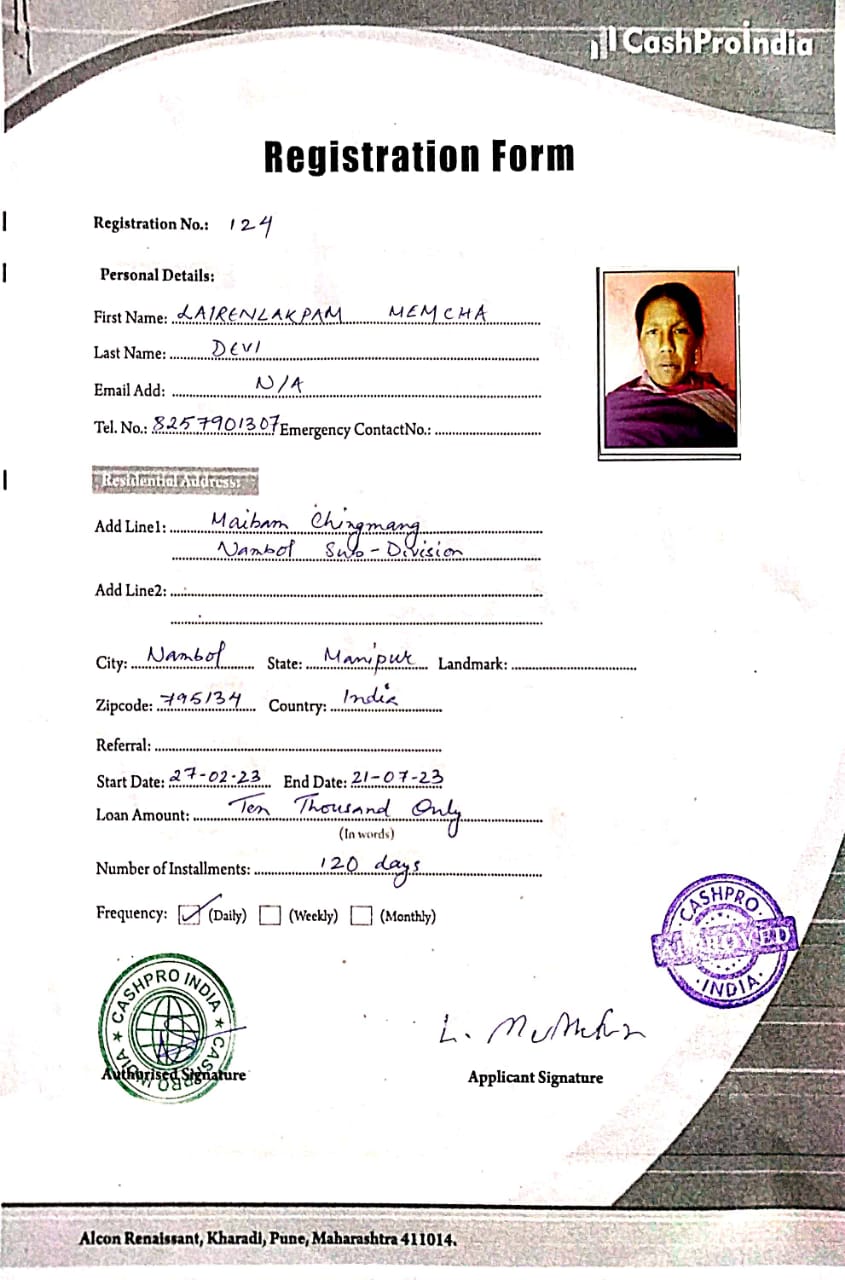 CashProIndia
Registration Form
Registration No.: 124
Personal Details:
First Name: LAIRENLAKPAM MEMCHA
Last Name: DEVI
Email Add: N/A
Tel. No.: 8257901307 Emergency ContactNo.:
Residential Address:
Add Line1: Maibam Chingmang
Nambol Sub-Division
Add Line2:
City: Nambol State: Manipur Landmark:
Zipcode: 795134 Country: India
Referral:
Start Date: 27-02-23 End Date: 21-07-23
Loan Amount: Ten Thousand Only
(In words)
Number of Installments: 120 days
Frequency: (Daily) (Weekly) (Monthly)
CASHPRO
APPROVED
INDIA
CASHPRO INDIA ★ CASHPRO INDIA ★
L. Memcha
Authorised Signature Applicant Signature
Alcon Renaissant, Kharadi, Pune, Maharashtra 411014.